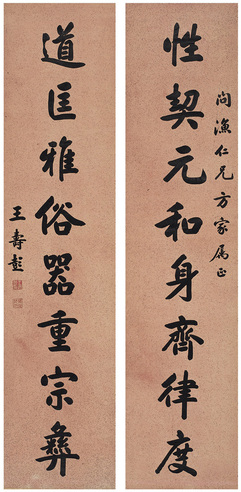 問漁仁兄方家属正
性契元和身齊律度
道匡雅俗器重宗彝
王壽彭